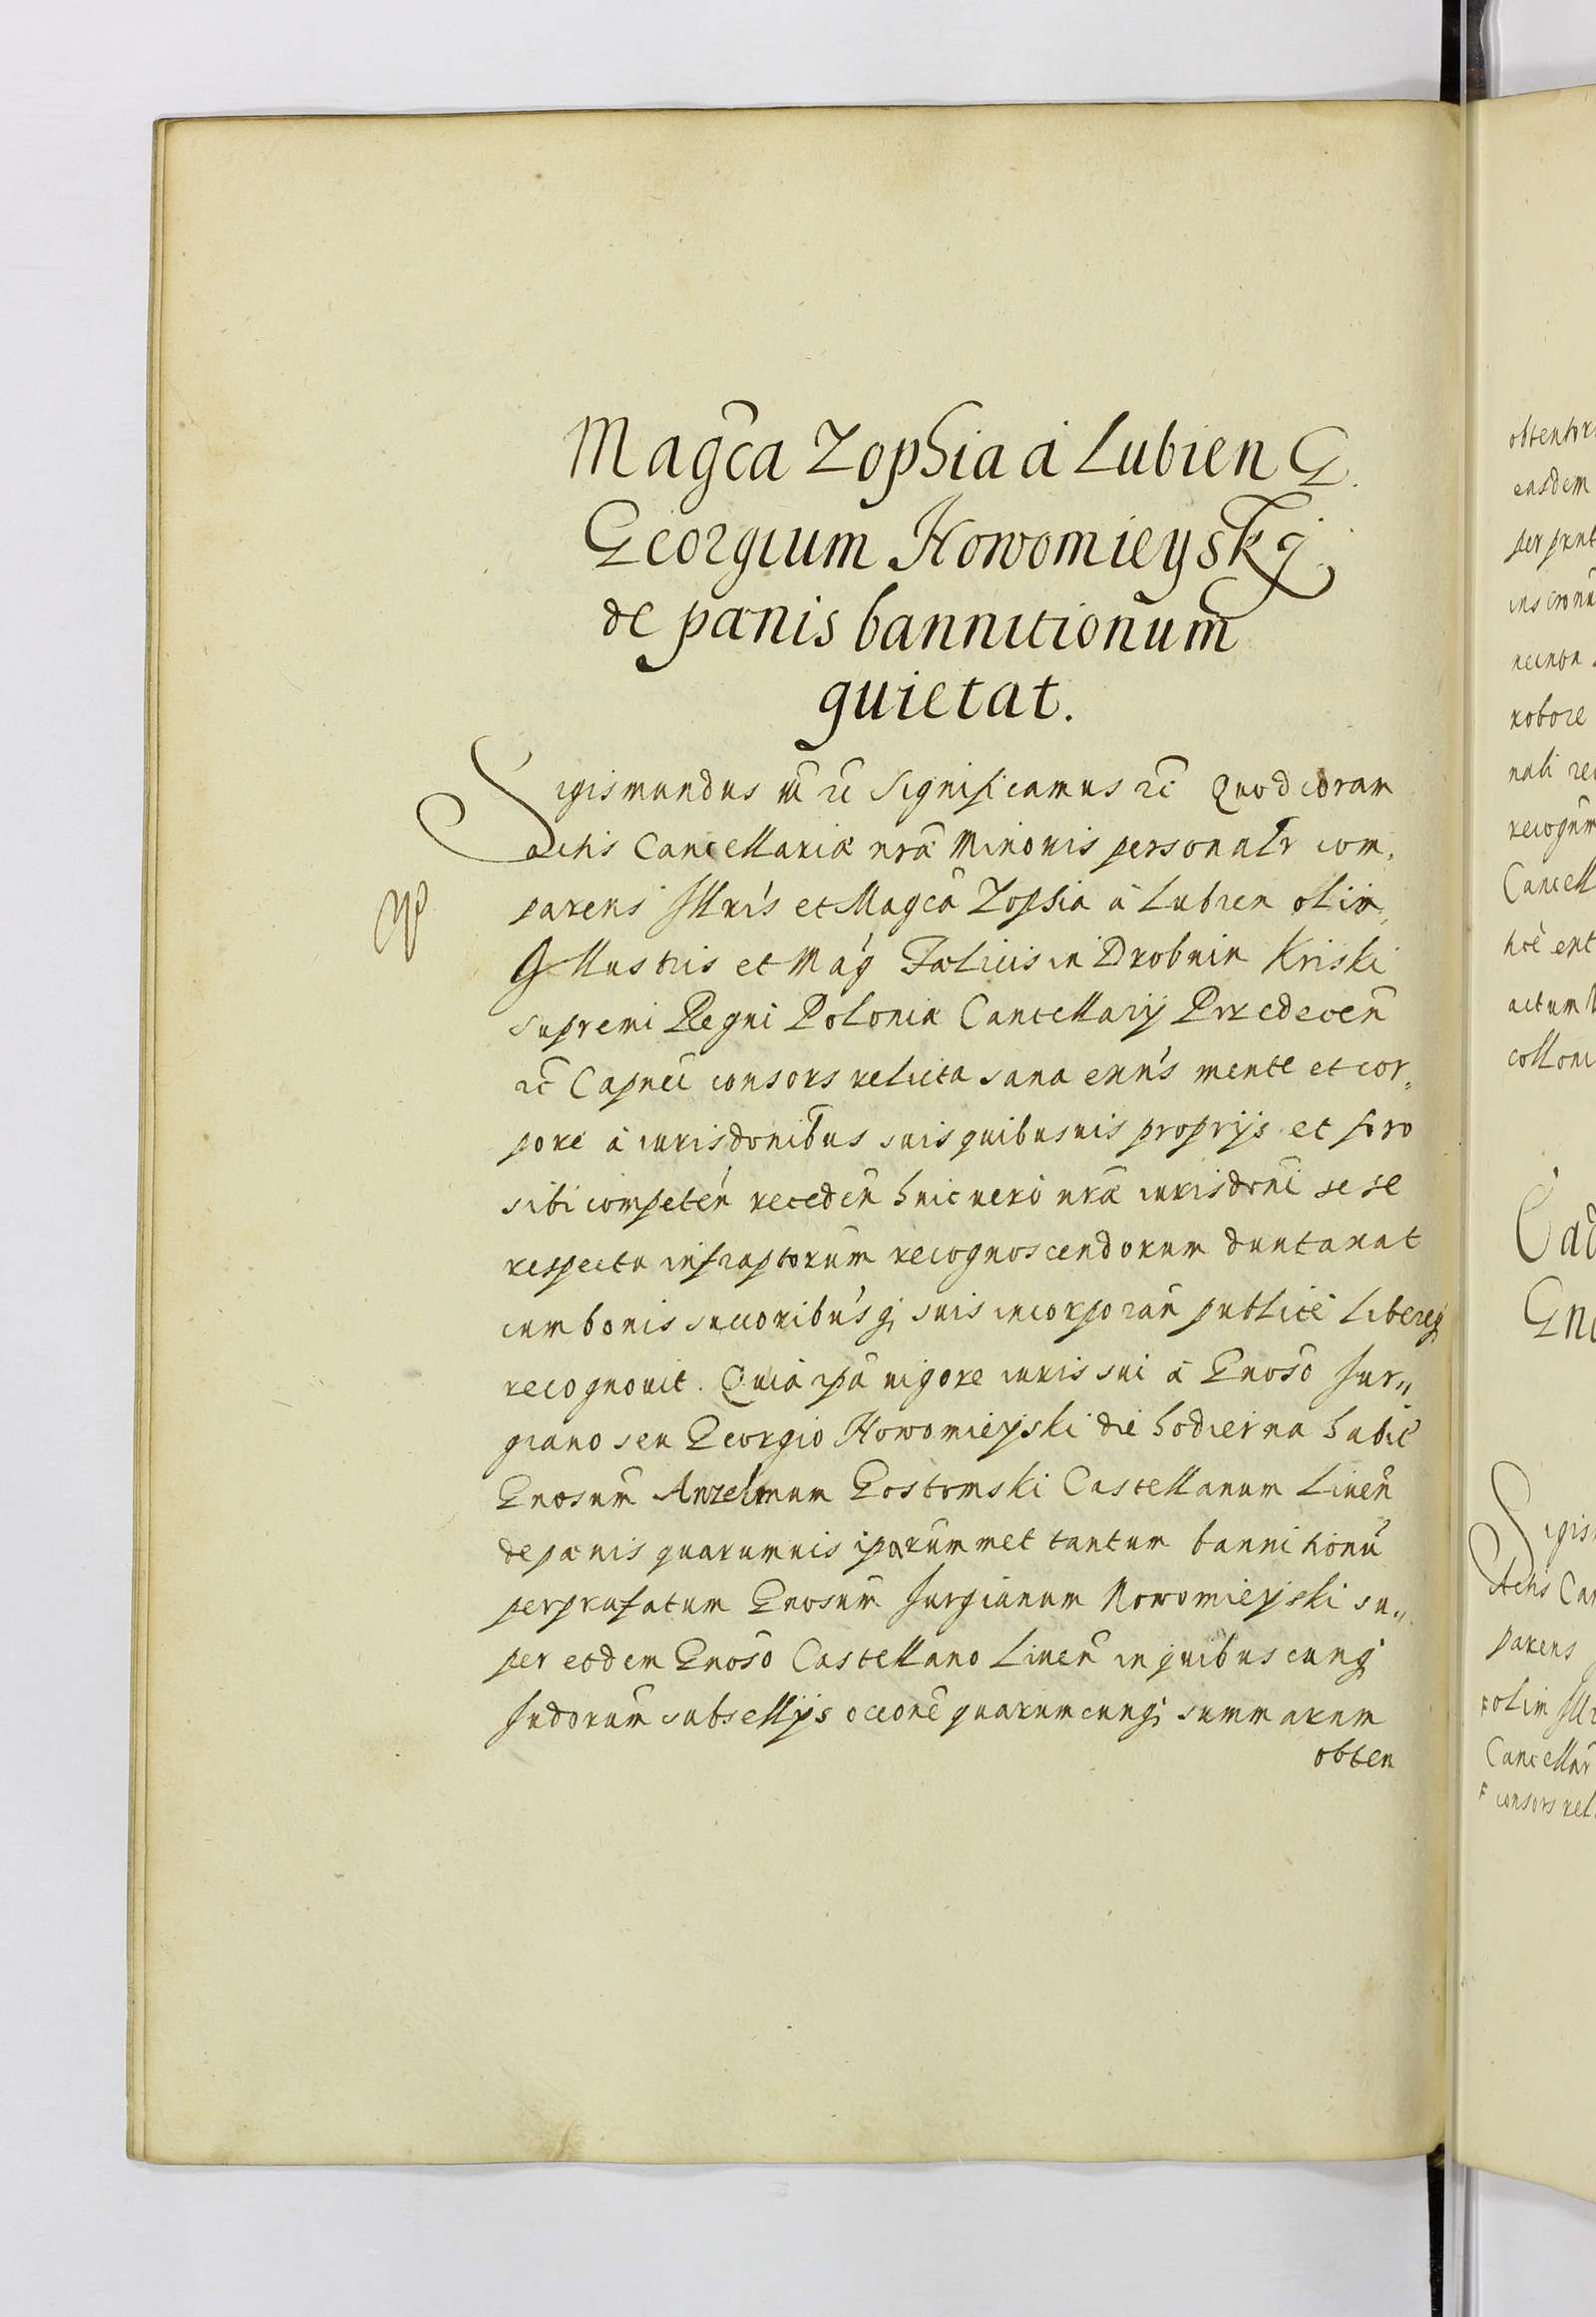 Magca Zophia à Lubien G.
Georgium Nowomieyskj
de pænis bannitionum
quietat.
Sigismundus III etc Significamus etc Quod coram
actis Cancellariæ nræ Minoris personalr com,
parens Illris et Magca Zophia à Lubien olim
Illustris et Mag Fælicis in Drobnin Kriski
supremi Regni Poloniæ Cancellarij Przedecen
etc Capnei consors relicta sana exns mente et cor„
pore à iurisdonibus suis quibusuis proprijs et foro
sibi competen receden huic vero nræ iurisdoni se se
respectu infraptorum recognoscendorum duntaxat
cum bonis succoribusq suis incorporan publice libereq
recognouit. Quia ipa uigore iuris sui à Gnoso Jur„
giano seu Georgio Nowomieyski die hodierna habit
Gnosum Anzelmum Gostomski Castellanum Liuen
de pænis quarumuis iparummet tantum bannitionu
per præfatum Gnosum Jurgianum Nowomieyski su„
per eodem Gnoso Castellano Liuen in quibuscunq
Judiorum subsellijs occone quarumcunq summarum
obten
obtentor
easdem
per prnt
robore
Cancell
actum
Gen
Sigis
Actis Can
parens
olim Ill
Cancellar
consors rel